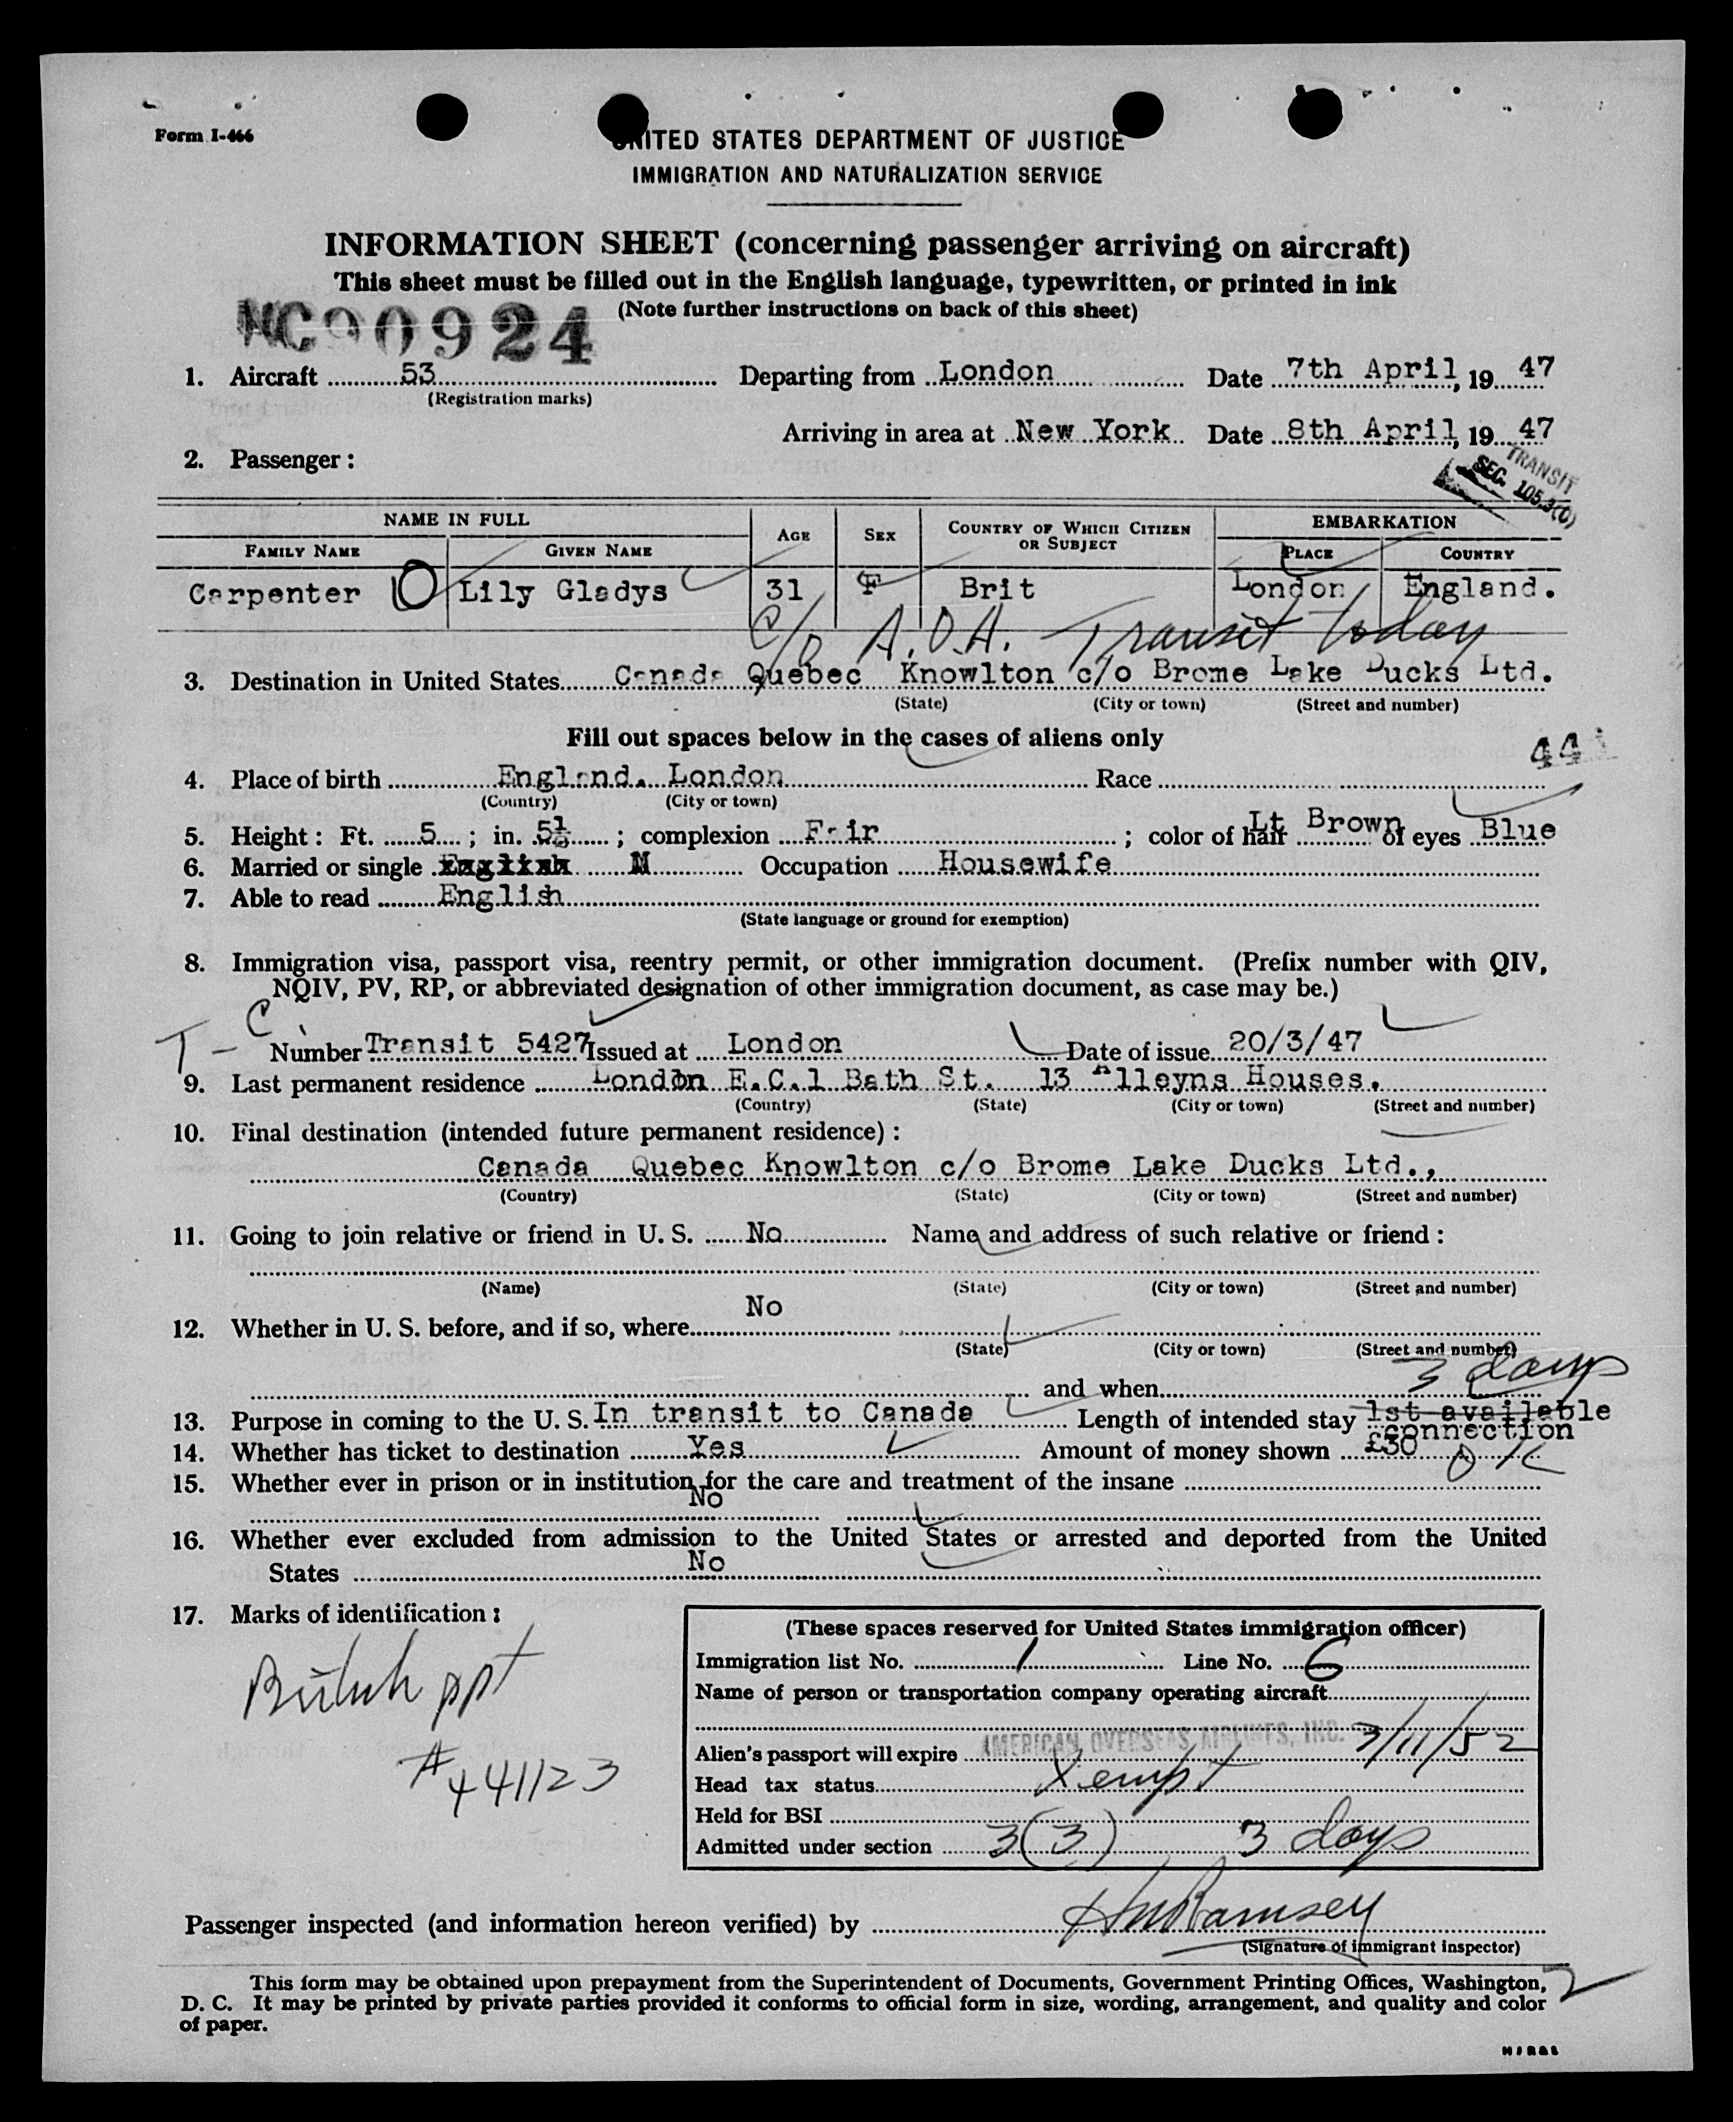 Form I-466
UNITED STATES DEPARTMENT OF JUSTICE
IMMIGRATION AND NATURALIZATION SERVICE
INFORMATION SHEET (concerning passenger arriving on aircraft)
This sheet must be filled out in the English language, typewritten, or printed in ink
(Note further instructions on back of this sheet)
NC90924
1. Aircraft 53 Departing from London Date 7th April, 19 47
(Registration marks)
Arriving in area at New York Date 8th April, 19 47
2. Passenger:
TRANSIT
SEC. 105.3(0)
NAME IN FULL AGE SEX COUNTRY OF WHICH CITIZEN OR SUBJECT EMBARKATION
FAMILY NAME GIVEN NAME PLACE COUNTRY
Carpenter Lily Gladys 31 F Brit London England.
c/o A.O.A. Transit today
3. Destination in United States Canada Quebec Knowlton c/o Brome Lake Ducks Ltd.
(State) (City or town) (Street and number)
Fill out spaces below in the cases of aliens only
44
4. Place of birth England. London Race
(Country) (City or town)
5. Height: Ft. 5; in. 5½; complexion Fair; color of hair Lt Brown of eyes Blue
6. Married or single English M Occupation Housewife
7. Able to read English
(State language or ground for exemption)
8. Immigration visa, passport visa, reentry permit, or other immigration document. (Prefix number with QIV,
NQIV, PV, RP, or abbreviated designation of other immigration document, as case may be.)
T - C
Number Transit 5427 Issued at London Date of issue 20/3/47
9. Last permanent residence London E.C.1 Bath St. 13 Alleyns Houses.
(Country) (State) (City or town) (Street and number)
10. Final destination (intended future permanent residence):
Canada Quebec Knowlton c/o Brome Lake Ducks Ltd.,
(Country) (State) (City or town) (Street and number)
11. Going to join relative or friend in U. S. No Name and address of such relative or friend:
(Name) (State) (City or town) (Street and number)
No
12. Whether in U. S. before, and if so, where
(State) (City or town) (Street and number)
and when 3 days
13. Purpose in coming to the U. S. In transit to Canada Length of intended stay 1st available
connection
14. Whether has ticket to destination Yes Amount of money shown £30 OK
15. Whether ever in prison or in institution for the care and treatment of the insane
No
16. Whether ever excluded from admission to the United States or arrested and deported from the United
States No
17. Marks of identification:
British ppt
#441123
(These spaces reserved for United States immigration officer)
Immigration list No. 1 Line No. 6
Name of person or transportation company operating aircraft
AMERICAN OVERSEAS AIRLINES, INC.
Alien's passport will expire 3/11/52
Head tax status Xempt
Held for BSI
Admitted under section 3(3) 3 days
Passenger inspected (and information hereon verified) by HM Ramsey
(Signature of immigrant inspector)
This form may be obtained upon prepayment from the Superintendent of Documents, Government Printing Offices, Washington,
D. C. It may be printed by private parties provided it conforms to official form in size, wording, arrangement, and quality and color
of paper.
2